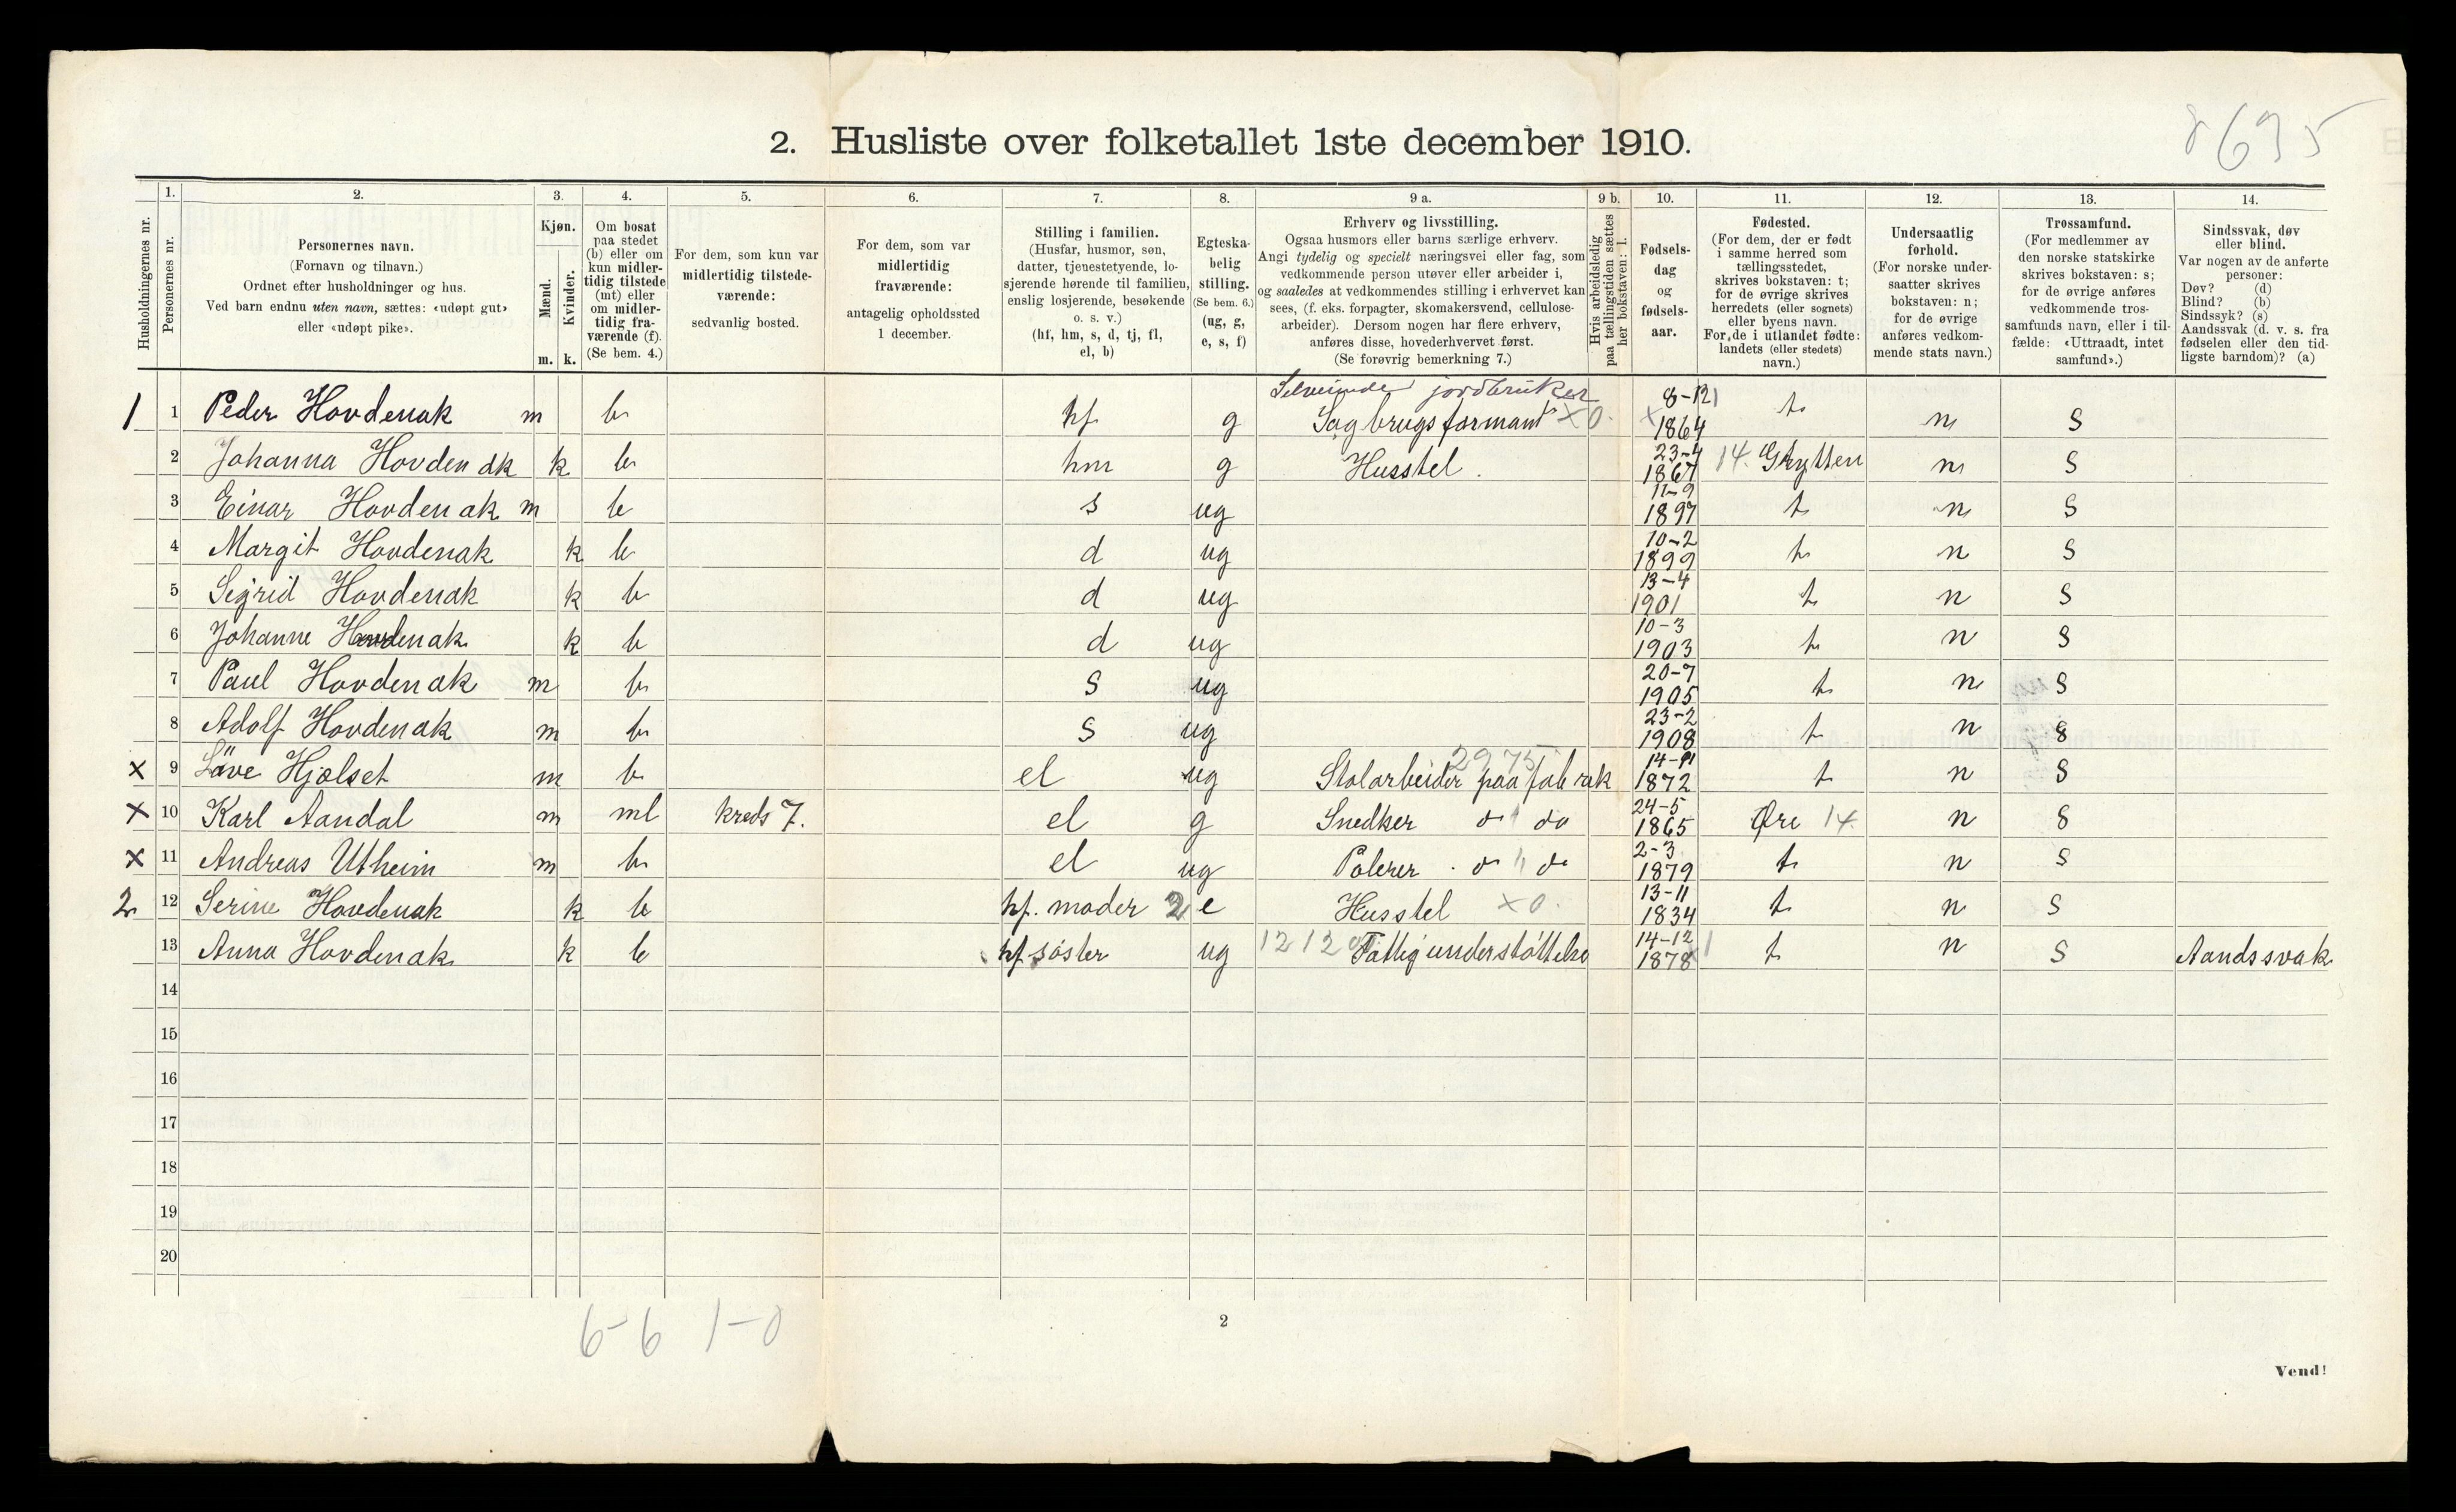 8635
2. Husliste over folketallet 1ste december 1910.
Husholdningernes nr.
1. Personernes nr.
2. Personernes navn.
(Fornavn og tilnavn.)
Ordnet efter husholdninger og hus.
Ved barn endnu uten navn, sættes: «udøpt gut»
eller «udøpt pike».
3. Kjøn.
Mænd. m.
Kvinder. k.
4. Om bosat
paa stedet
(b) eller om
kun midler-
tidig tilstede
(mt) eller
om midler-
tidig fra-
værende (f).
(Se bem. 4.)
5. For dem, som kun var
midlertidig tilstede-
værende:
sedvanlig bosted.
6. For dem, som var
midlertidig
fraværende:
antagelig opholdssted
1 december.
7. Stilling i familien.
(Husfar, husmor, søn,
datter, tjenestetyende, lo-
sjerende hørende til familien,
enslig losjerende, besøkende
o. s. v.)
(hf, hm, s, d, tj, fl,
el, b)
8. Egteska-
belig
stilling.
(Se bem. 6.)
(ug, g,
e, s, f)
9 a. Erhverv og livsstilling.
Ogsaa husmors eller barns særlige erhverv.
Angi tydelig og specielt næringsvei eller fag, som
vedkommende person utøver eller arbeider i,
og saaledes at vedkommendes stilling i erhvervet kan
sees, (f. eks. forpagter, skomakersvend, cellulose-
arbeider). Dersom nogen har flere erhverv,
anføres disse, hovederhvervet først.
(Se forøvrig bemerkning 7.)
9 b. Hvis arbeidsledig
paa tællingstiden sættes
her bokstaven: l.
10. Fødsels-
dag
og
fødsels-
aar.
11. Fødested.
(For dem, der er født
i samme herred som
tællingsstedet,
skrives bokstaven: t;
for de øvrige skrives
herredets (eller sognets)
eller byens navn.
For de i utlandet fødte:
landets (eller stedets)
navn.)
12. Undersaatlig
forhold.
(For norske under-
saatter skrives
bokstaven: n;
for de øvrige
anføres vedkom-
mende stats navn.)
13. Trossamfund.
(For medlemmer av
den norske statskirke
skrives bokstaven: s;
for de øvrige anføres
vedkommende tros-
samfunds navn, eller i til-
fælde: «Uttraadt, intet
samfund».)
14. Sindssvak, døv
eller blind.
Var nogen av de anførte
personer:
Døv? (d)
Blind? (b)
Sindssyk? (s)
Aandssvak (d. v. s. fra
fødselen eller den tid-
ligste barndom)? (a)
Selveiende jordbruker
1 1 Peder Hovdenak m b hf g Sagbrugsformand X0 8-12 1864 t n s
2 Johanna Hovdenak k b hm g Husstel. 23-4 1867 14. Grytten n s
3 Einar Hovdenak m b s ug 11-9 1897 t n s
4 Margit Hovdenak k b d ug 10-2 1899 t n s
5 Sigrid Hovdenak k b d ug 13-4 1901 t n s
6 Johanne Hovdenak k b d ug 10-3 1903 t n s
7 Paul Hovdenak m b s ug 20-7 1905 t n s
8 Adolf Hovdenak m b s ug 23-2 1908 t n s
2975
X 9 Hjelset m b el ug Stolarbeider paa fabrik 14-11 1872 t n s
X 10 Karl Aandal m mt kreds 7. el g Snedker do do 24-5 1865 Øre 14 n s
X 11 Andreas Utheim m b el ug Polerer do do 2-3 1879 t n s
2 12 Serine Hovdenak k b hf. moder 2 e Husstel X0. 13-11 1834 t n s
13 Anna Hovdenak k b hf søster ug 1212 Fattigunderstøttelse 14-12 1878 t n s Aandssvak
14
15
16
17
18
19
20
6-6 1-0
2
Vend!